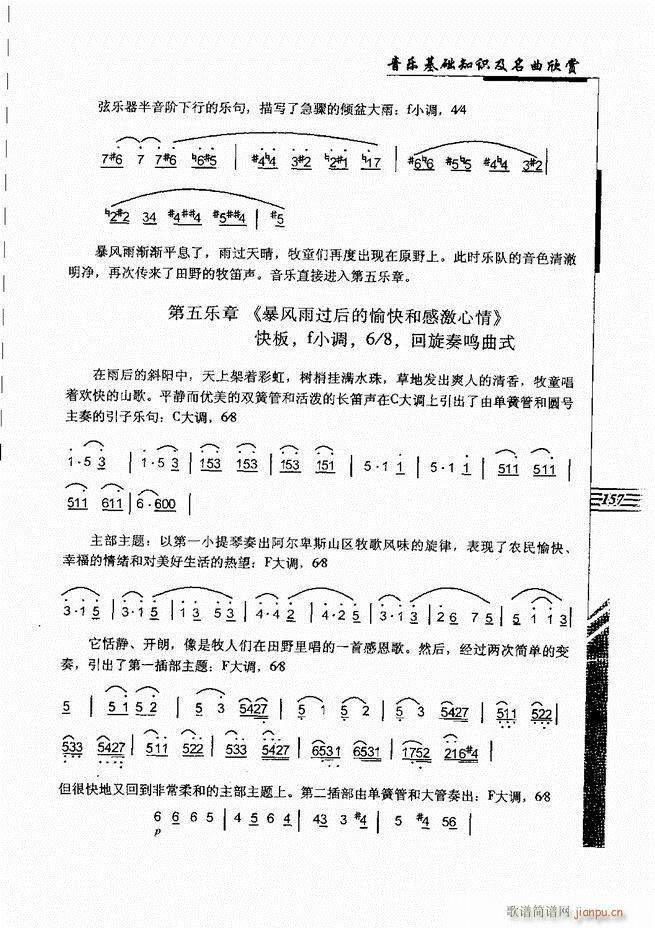 音乐基础知识及名曲欣赏
弦乐器半音阶下行的乐句，描写了急骤的倾盆大雨：f小调，4/4
7#6 7 7#6 ♮6#5 | #4♮4 3#2 ♮2#1 ♮17 | #6♮6 #5♮5 #4♮4 3#2 |
♮2#2 34 #4## #5##4 | #5
暴风雨渐渐平息了，雨过天晴，牧童们再度出现在原野上。此时乐队的音色清澈
明净，再次传来了田野的牧笛声。音乐直接进入第五乐章。
第五乐章 《暴风雨过后的愉快和感激心情》
快板，f小调，6/8，回旋奏鸣曲式
在雨后的斜阳中，天上架着彩虹，树梢挂满水珠，草地发出爽人的清香，牧童唱
着欢快的山歌。平静而优美的双簧管和活泼的长笛声在C大调上引出了由单簧管和圆号
主奏的引子乐句：C大调，6/8
1·5 3 | 1·5 3 | 153 153 | 153 151 | 5·1 1 | 5·1 1 | 511 511 |
511 611 | 6·600 |
157
主部主题：以第一小提琴奏出阿尔卑斯山区牧歌风味的旋律，表现了农民愉快、
幸福的情绪和对美好生活的热望：F大调，6/8
3·1 5 | 3·1 5 | 1 3 5 3 | 4·4 2 | 5·4 3 | 3·1 3 | 2 6 7 5 | 5 1 1 3
它恬静、开朗，像是牧人们在田野里唱的一首感恩歌。然后，经过两次简单的变
奏，引出了第一插部主题：F大调，6/8
5 | 5 1 5 2 | 5 3 5427 | 5 1 5 2 | 5 3 5427 | 511 522 |
533 5427 | 511 522 | 533 5427 | 6531 6531 | 1752 216#4 |
但很快地又回到非常柔和的主部主题上。第二插部由单簧管和大管奏出：F大调，6/8
6 6 6 5 | 4 5 6 4 | 43 3 #4 | 5 #4 56 |
p
歌谱简谱网 jianpu.cn